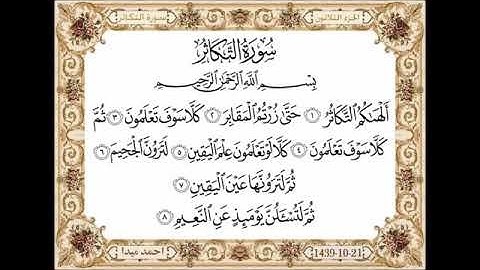 الجزء الثلاثون
سورة التكاثر
سُورَةُ التَّكَاثُرِ
بِسْمِ اللَّهِ الرَّحْمَٰنِ الرَّحِيمِ
أَلْهَىٰكُمُ ٱلتَّكَاثُرُ ١ حَتَّىٰ زُرْتُمُ ٱلْمَقَابِرَ ٢ كَلَّا سَوْفَ تَعْلَمُونَ ٣ ثُمَّ
كَلَّا سَوْفَ تَعْلَمُونَ ٤ كَلَّا لَوْ تَعْلَمُونَ عِلْمَ ٱلْيَقِينِ ٥ لَتَرَوُنَّ ٱلْجَحِيمَ ٦
ثُمَّ لَتَرَوُنَّهَا عَيْنَ ٱلْيَقِينِ ٧
ثُمَّ لَتُسْـَٔلُنَّ يَوْمَئِذٍ عَنِ ٱلنَّعِيمِ ٨
1439-10-21
احمد ميدا